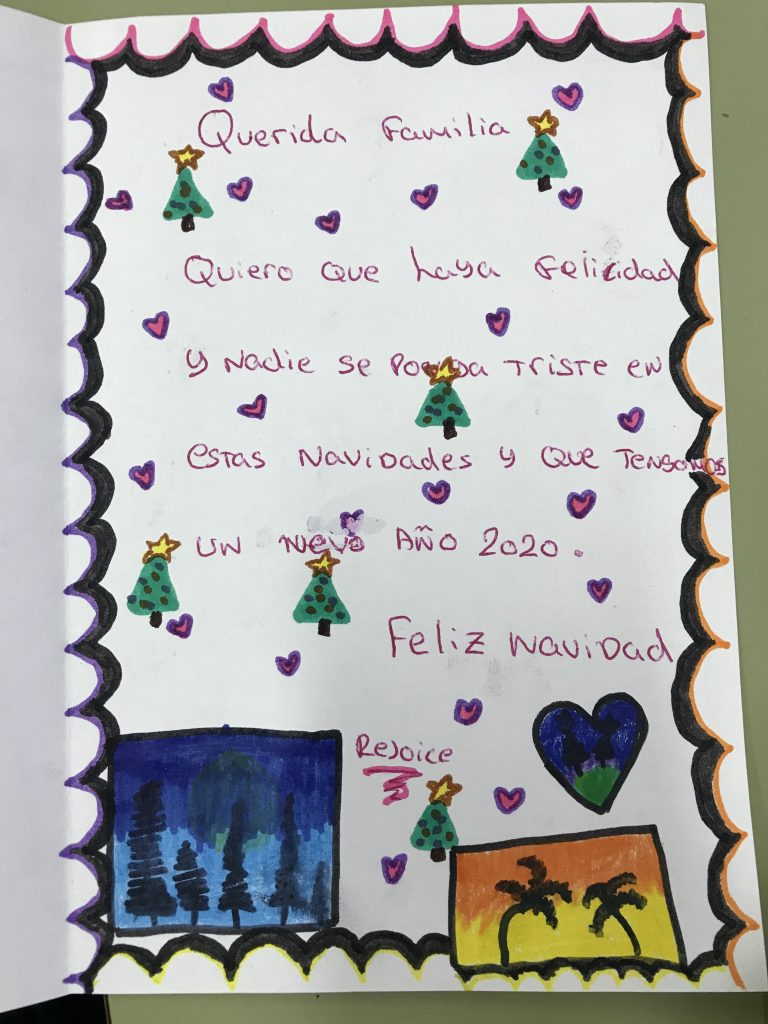 Querida Familia
Quiero que haya Felicidad
y nadie se ponga triste en
estas navidades y que tengamos
un nuevo año 2020.
Feliz navidad
Rejoice